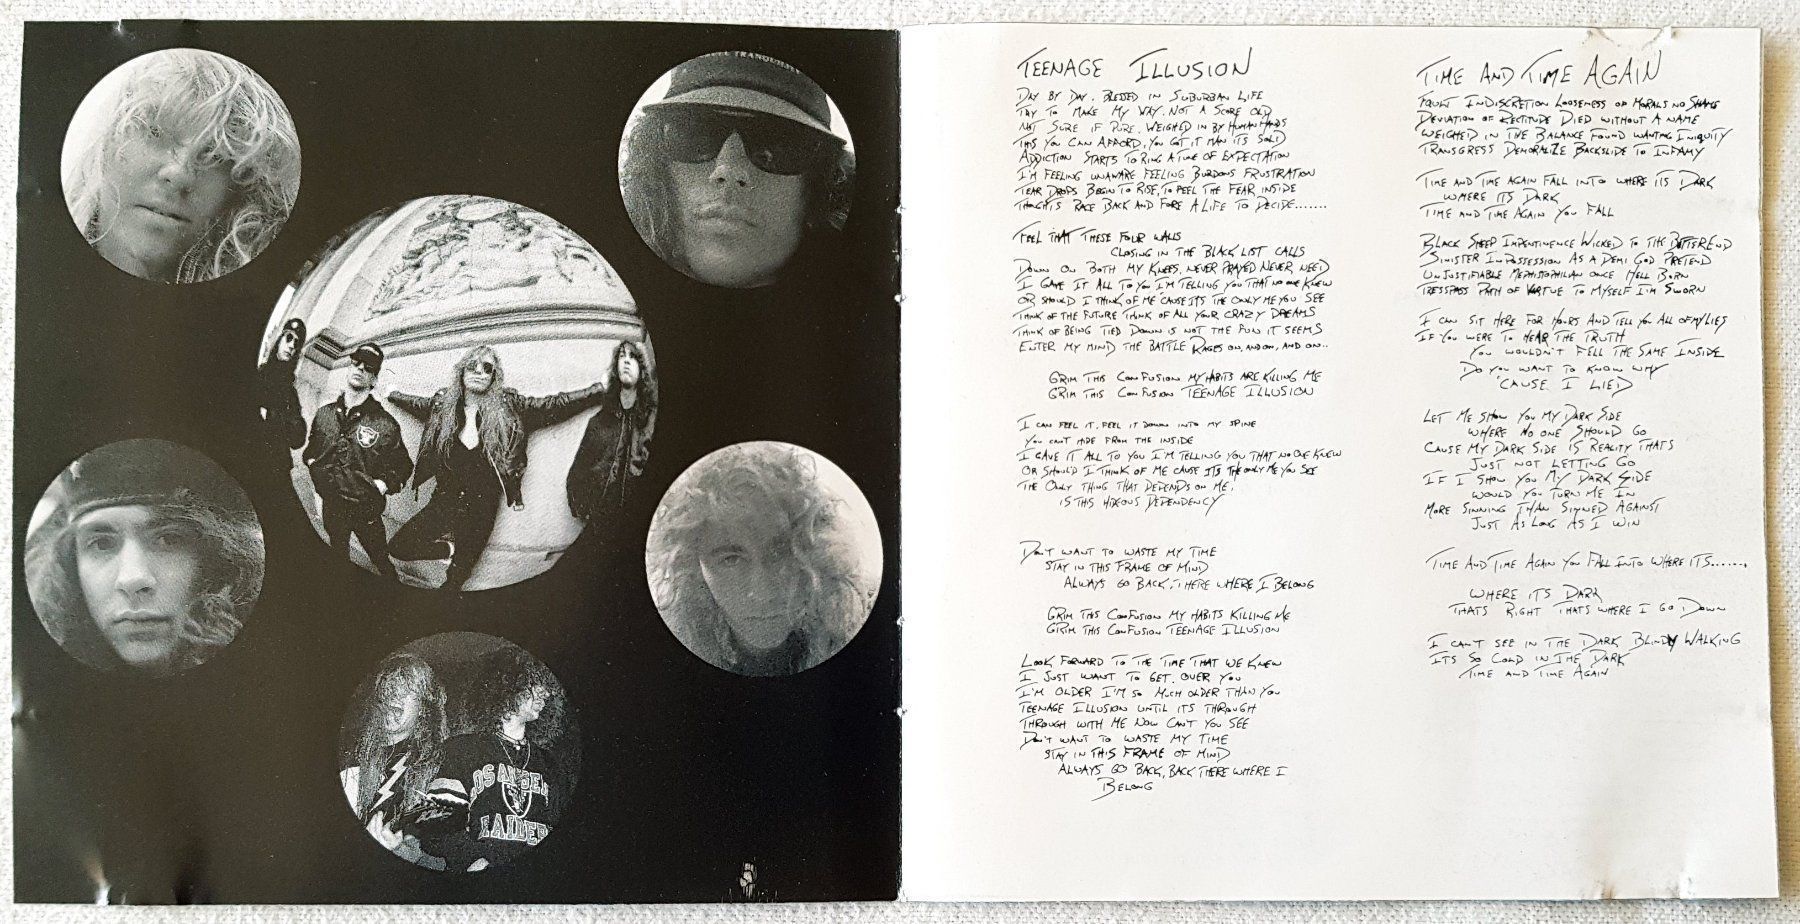 TRANQUILITY
LOS ANGELES
RAIDERS
TEENAGE ILLUSION
DAY BY DAY. BLESSED IN SUBURBAN LIFE
TRY TO MAKE MY WAY. NOT A SCORE OLD
NOT SURE IF PURE. WEIGHED IN BY HUMAN HANDS
THIS YOU CAN AFFORD, YOU GOT IT MAN ITS SOLD
ADDICTION STARTS TO RING A TUNE OF EXPECTATION
I'M FEELING UNAWARE FEELING BURDONS FRUSTRATION
TEAR DROPS BEGIN TO RISE, TO PEEL THE FEAR INSIDE
THOUGHTS RACE BACK AND FORE A LIFE TO DECIDE.......
FEEL THAT THESE FOUR WALLS
CLOSING IN THE BLACK LIST CALLS
DOWN ON BOTH MY KNEES, NEVER PRAYED NEVER NEED
I GAVE IT ALL TO YOU I'M TELLING YOU THAT NO ONE KNEW
OR SHOULD I THINK OF ME CAUSE ITS THE ONLY ME YOU SEE
THINK OF THE FUTURE THINK OF ALL YOUR CRAZY DREAMS
THINK OF BEING TIED DOWN IS NOT THE FUN IT SEEMS
ENTER MY MIND THE BATTLE RAGES ON, AND ON, AND ON..
GRIM THIS CONFUSION MY HABITS ARE KILLING ME
GRIM THIS CONFUSION TEENAGE ILLUSION
I CAN FEEL IT, FEEL IT DOWN INTO MY SPINE
YOU CANT HIDE FROM THE INSIDE
I GAVE IT ALL TO YOU I'M TELLING YOU THAT NO ONE KNEW
OR SHOULD I THINK OF ME CAUSE ITS THE ONLY ME YOU SEE
THE ONLY THING THAT DEPENDS ON ME,
IS THIS HIDEOUS DEPENDENCY
DON'T WANT TO WASTE MY TIME
STAY IN THIS FRAME OF MIND
ALWAYS GO BACK, THERE WHERE I BELONG
GRIM THIS CONFUSION MY HABITS KILLING ME
GRIM THIS CONFUSION TEENAGE ILLUSION
LOOK FORWARD TO THE TIME THAT WE KNEW
I JUST WANT TO GET OVER YOU
I'M OLDER I'M SO MUCH OLDER THAN YOU
TEENAGE ILLUSION UNTIL ITS THROUGH
THROUGH WITH ME NOW CAN'T YOU SEE
DON'T WANT TO WASTE MY TIME
STAY IN THIS FRAME OF MIND
ALWAYS GO BACK, BACK THERE WHERE I
BELONG
TIME AND TIME AGAIN
FAULT INDISCRETION LOOSENESS OF MORALS NO SHAME
DEVIATION OF RECTITUDE DIED WITHOUT A NAME
WEIGHED IN THE BALANCE FOUND WANTING INIQUITY
TRANSGRESS DEMORALIZE BACKSLIDE TO INFAMY
TIME AND TIME AGAIN FALL INTO WHERE ITS DARK
WHERE ITS DARK
TIME AND TIME AGAIN YOU FALL
BLACK SHEEP IMPENTINENCE WICKED TO THE BITTER END
SINISTER IN POSSESSION AS A DEMI GOD PRETEND
UNJUSTIFIABLE MEPHISTOPHILIAN ONCE HELL BORN
TRESSPASS PATH OF VIRTUE TO MYSELF I'M SWORN
I CAN SIT HERE FOR HOURS AND TELL YOU ALL OF MY LIES
IF YOU WERE TO HEAR THE TRUTH
YOU WOULDN'T FELL THE SAME INSIDE
DO YOU WANT TO KNOW WHY
'CAUSE I LIED
LET ME SHOW YOU MY DARK SIDE
WHERE NO ONE SHOULD GO
CAUSE MY DARK SIDE IS REALITY THATS
JUST NOT LETTING GO
IF I SHOW YOU MY DARK SIDE
WOULD YOU TURN ME IN
MORE SINNING THAN SINNED AGAINST
JUST AS LONG AS I WIN
TIME AND TIME AGAIN YOU FALL INTO WHERE ITS.......
WHERE ITS DARK
THATS RIGHT THATS WHERE I GO DOWN
I CAN'T SEE IN THE DARK BLINDY WALKING
ITS SO COLD IN THE DARK
TIME AND TIME AGAIN